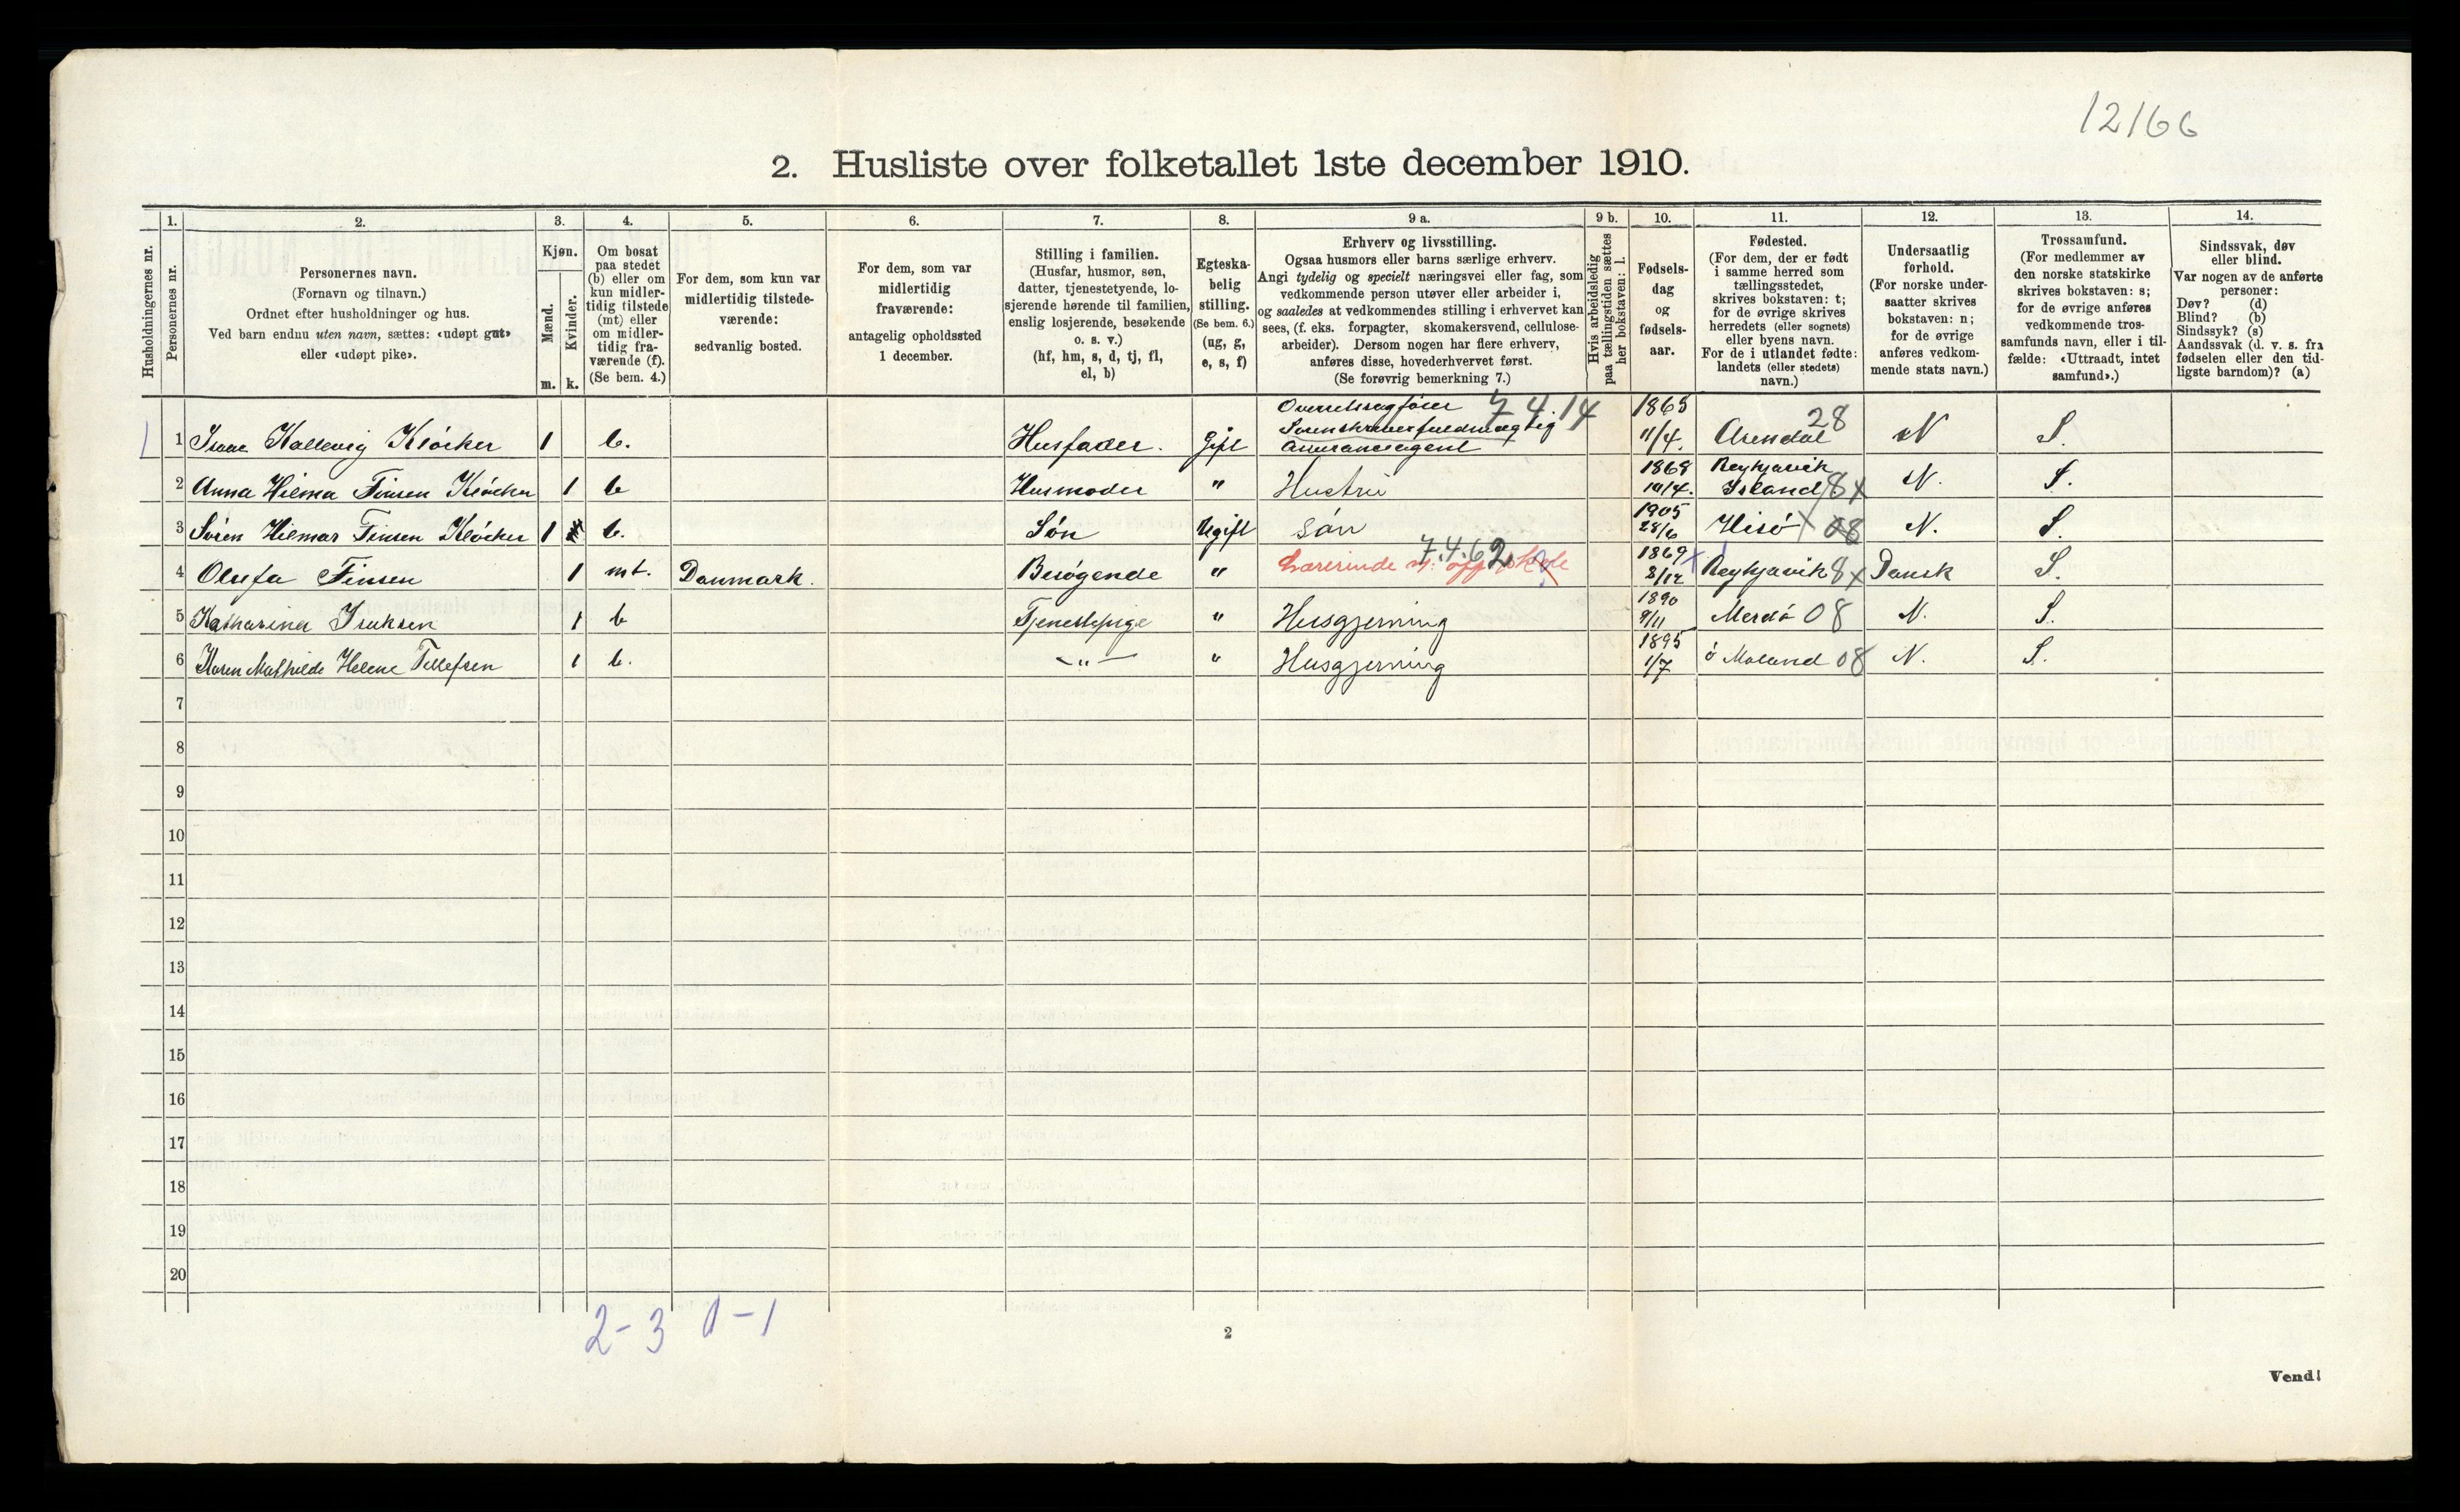 12166
2. Husliste over folketallet 1ste december 1910.
Husholdningernes nr.
1.
Personernes nr.
2.
Personernes navn.
(Fornavn og tilnavn.)
Ordnet efter husholdninger og hus.
Ved barn endnu uten navn, sættes: «udøpt gut»
eller «udøpt pike».
3.
Kjøn.
Mænd.
Kvinder.
m. k.
4.
Om bosat
paa stedet
(b) eller om
kun midler-
tidig tilstede
(mt) eller
om midler-
tidig fra-
værende (f).
(Se bem. 4.)
5.
For dem, som kun var
midlertidig tilstede-
værende:
sedvanlig bosted.
6.
For dem, som var
midlertidig
fraværende:
antagelig opholdssted
1 december.
7.
Stilling i familien.
(Husfar, husmor, søn,
datter, tjenestetyende, lo-
sjerende hørende til familien,
enslig losjerende, besøkende
o. s. v.)
(hf, hm, s, d, tj, fl,
el, b)
8.
Egteska-
belig
stilling.
(Se bem. 6.)
(ug, g,
e, s, f)
9 a.
Erhverv og livsstilling.
Ogsaa husmors eller barns særlige erhverv.
Angi tydelig og specielt næringsvei eller fag, som
vedkommende person utøver eller arbeider i,
og saaledes at vedkommendes stilling i erhvervet kan
sees, (f. eks. forpagter, skomakersvend, cellulose-
arbeider). Dersom nogen har flere erhverv,
anføres disse, hovederhvervet først.
(Se forøvrig bemerkning 7.)
9 b.
Hvis arbeidsledig
paa tællingstiden sættes
her bokstaven: l.
10.
Fødsels-
dag
og
fødsels-
aar.
11.
Fødested.
(For dem, der er født
i samme herred som
tællingsstedet,
skrives bokstaven: t;
for de øvrige skrives
herredets (eller sognets)
eller byens navn.
For de i utlandet fødte:
landets (eller stedets)
navn.)
12.
Undersaatlig
forhold.
(For norske under-
saatter skrives
bokstaven: n;
for de øvrige
anføres vedkom-
mende stats navn.)
13.
Trossamfund.
(For medlemmer av
den norske statskirke
skrives bokstaven: s;
for de øvrige anføres
vedkommende tros-
samfunds navn, eller i til-
fælde: «Uttraadt, intet
samfund».)
14.
Sindssvak, døv
eller blind.
Var nogen av de anførte
personer:
Døv? (d)
Blind? (b)
Sindssyk? (s)
Aandssvak (d. v. s. fra
fødselen eller den tid-
ligste barndom)? (a)
Overretssagfører 7.4.14 1865 28
1 1 Isaac Kallevig Klöcker 1 b. Husfader. Gift Sorenskriverfuldmægtig 11/4. Arendal N S.
Assuranceagent
1868 Reykjavik
2 Anna Hilma Finsen Klöcker 1 b Husmoder " Hustru 19/4. Island 8x N. S.
1905
3 Sören Hilmar Finsen Klöcker 1 b. Søn Ugift søn 28/6 Hisö x 08 N. S.
7.4.62 1869
4 Olufa Finsen 1 mt. Danmark. Besøgende " Lærerinde 2/12 Reykjavik 8x Dansk S.
1890
5 Katharina Isaksen 1 b Tjenestepige " Husgjerning 9/11 Merdö 08 N. S.
1895
6 Karen Mathilde Helene Tellefsen 1 b. —"— " Husgjerning 1/7 ö Moland 08 N. S.
7
8
9
10
11
12
13
14
15
16
17
18
19
20
2-3 0-1
2
Vend!